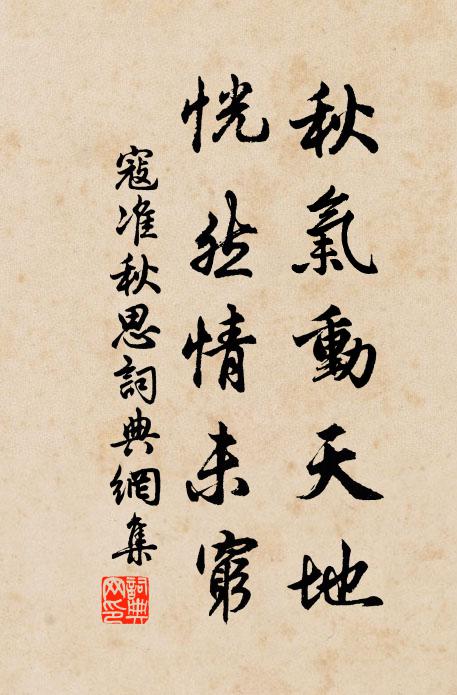 秋氣動天地
恍然情未窮
寇准秋思詞典網集
詞典网印